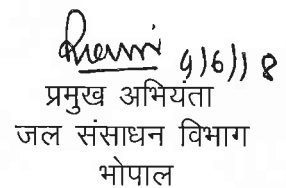 9/6/18
प्रमुख अभियंता
जल संसाधन विभाग
भोपाल